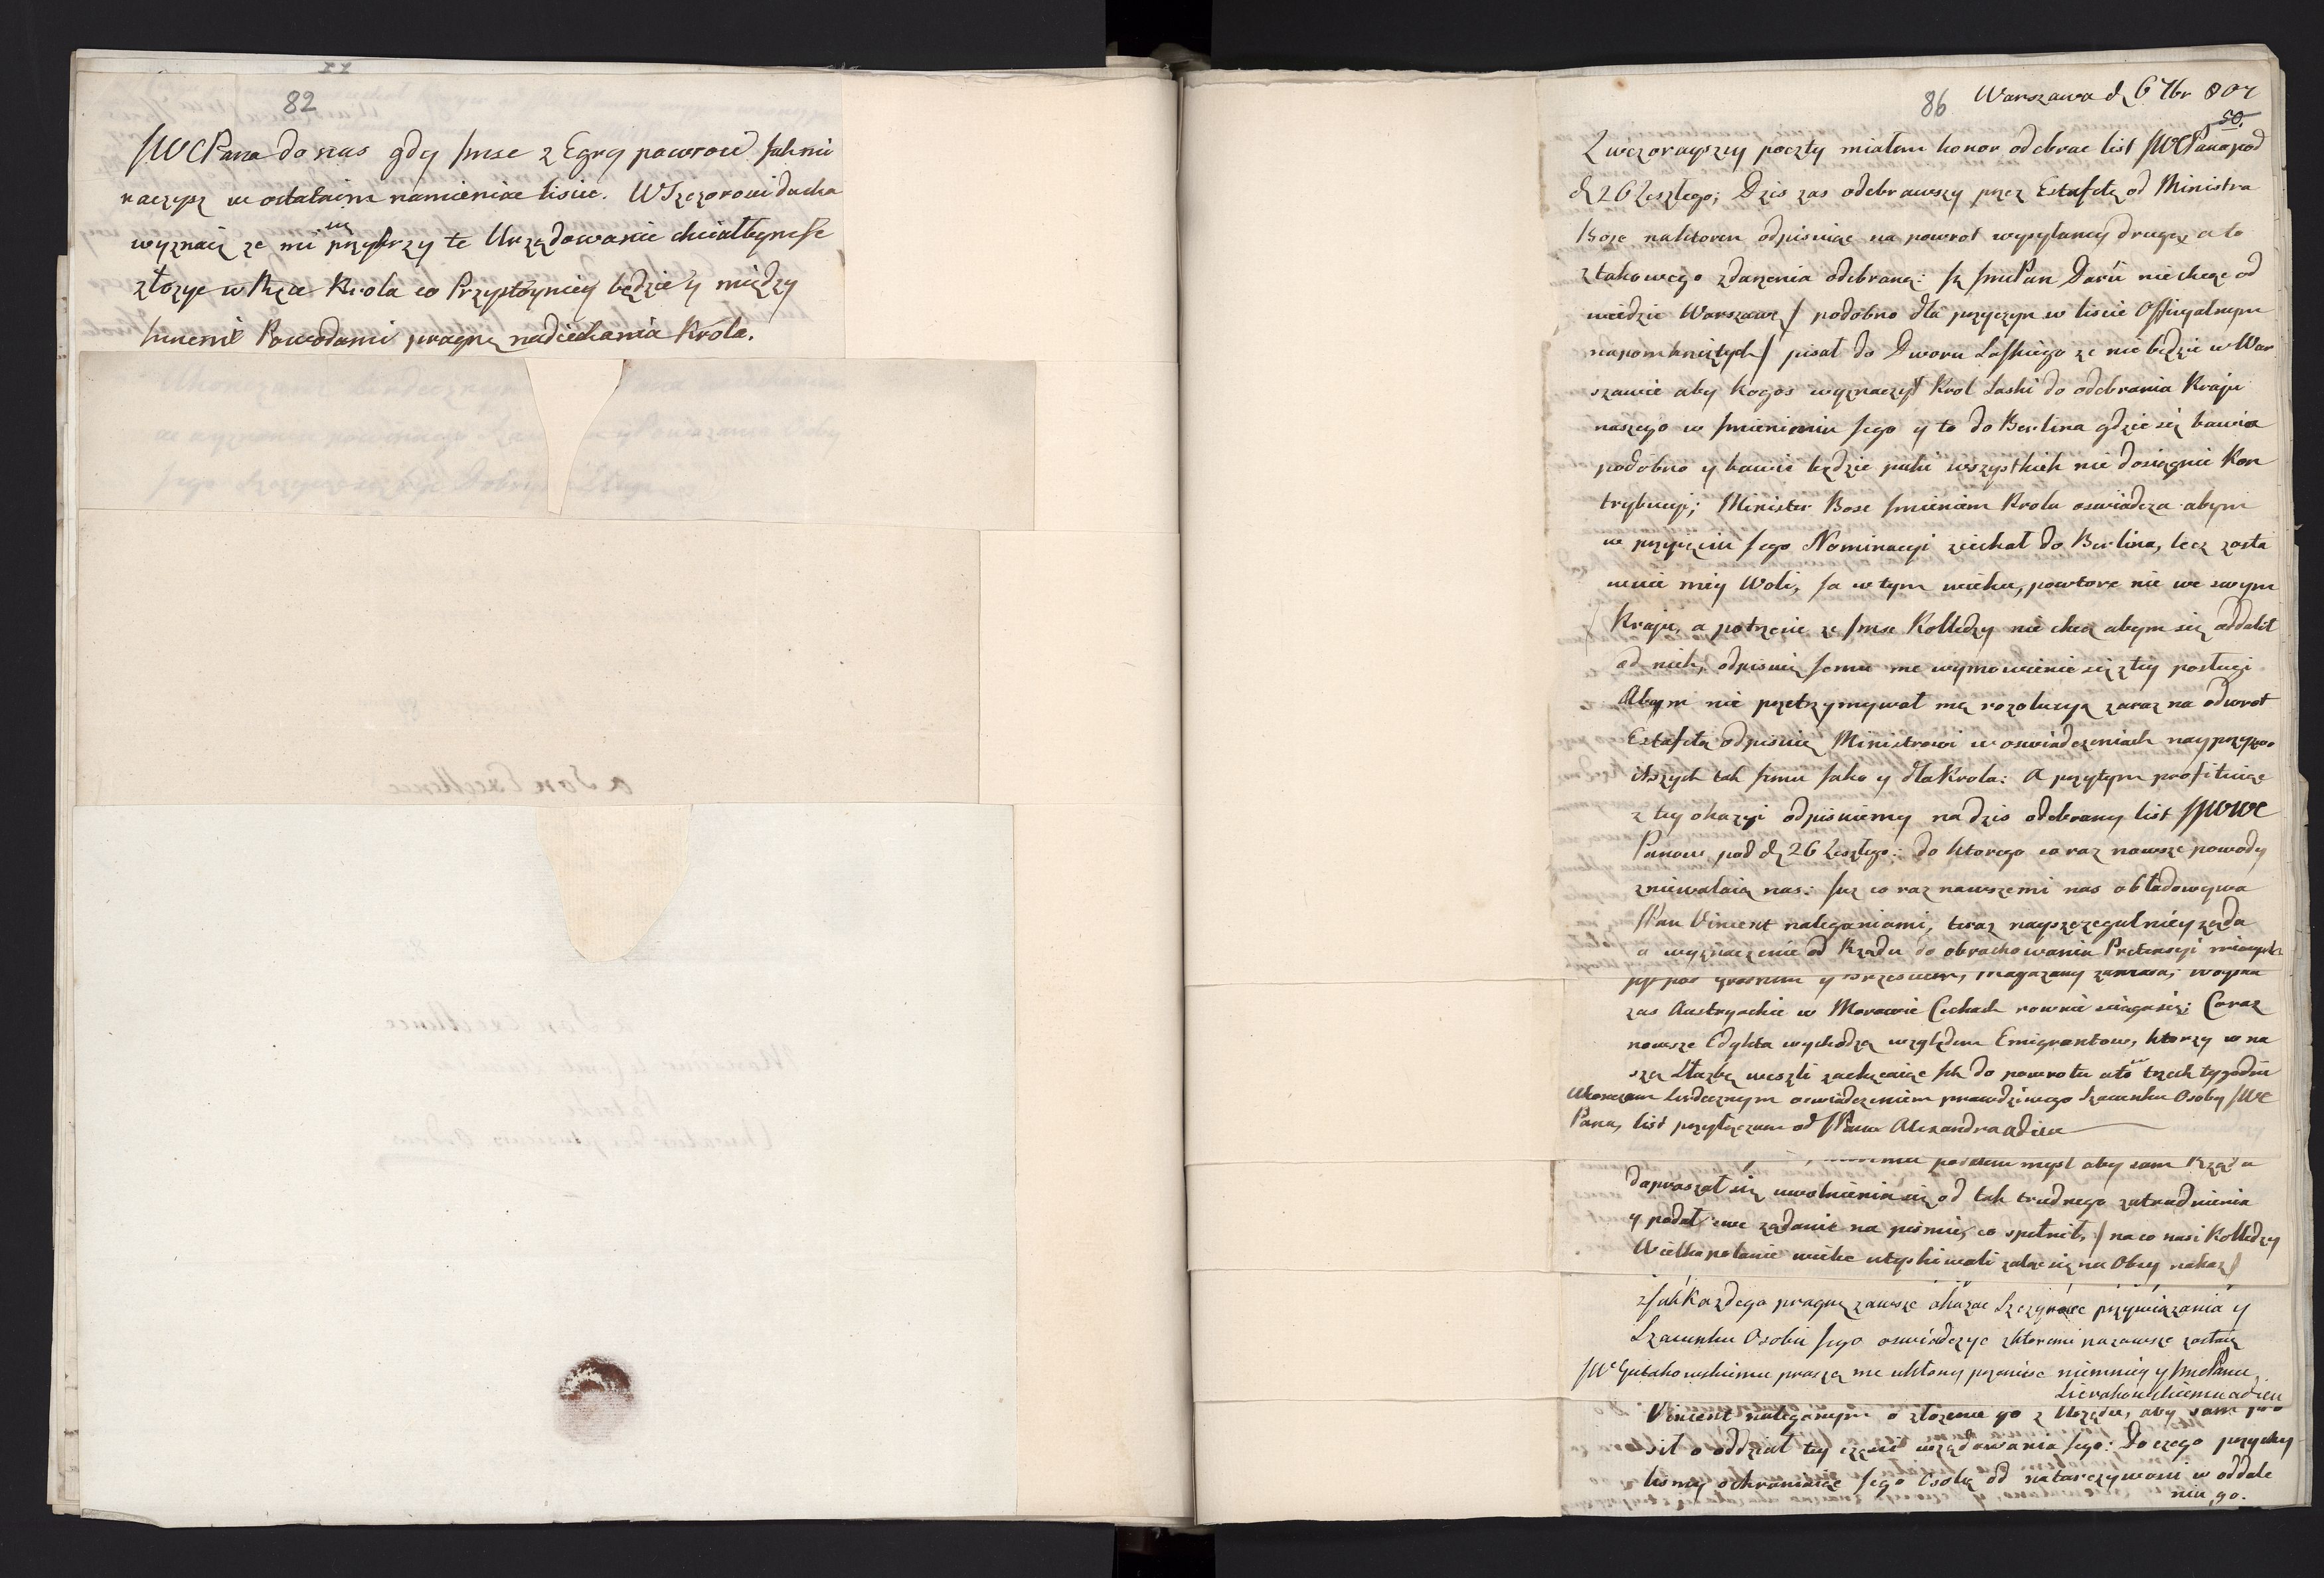 82
JWCPana do nas gdy Jmse z Egry powroci Jak mi
raczysz w ostatnim namieniac liscie. W Szczerosci ducha
wyznaię ze mi się przykrzy te Urzędowanie chciałbym Je
złozyc w Ręce Krola co Przystoyniey będzie y między
Jnnemi Powodami pragnę nadiechania Krola.
a Son Excellence
a Son Excellence
Monsieur le Comte
Potocki
86 Warszawa d 6 7br 807
50.
Z wczorayszey poczty miałem honor odebrac list JWCPana pod
d 26 Zeszłego; Dzis zas odebrawszy przez Estafetę od Ministra
Boze na ktoren odpisuiąc na powrot wysyłamy drugą a to
z takowego zdarzenia odebraną: Jz JmePan Daru niechcąc od
wiedzic Warszawę / podobno dla przyczyn w liscie Officyalnym
napomkniętych / pisał do Dworu Saskiego ze nie będzie w War
szawie aby kogos wyznaczył Krol Saski do odebrania Kraju
naszego w Jmieniu Jego y to do Berlina gdzie się bawi
podobno y bawic będzie puki wszystkich nie dosiągnie Kon
trybucyi; Minister Bose Jmieniem Krola oswiadcza abym
w przyięciu Jego Nominacyi ziechał do Berlina, lecz zosta
wuie mey Woli, Ja w tym wieku, powtore nie we swym
Kraju, a potrzecie ze Jmse Kolledzy nie chcą abym się oddalił
od nich, odpisuię Jemu me wymowienie się z tey posługi
Abym nie przetrzymywał mą rozolucyą zaraz na odwrot
Estafetą odpisuię Ministrowi w oswiadczeniach nayprzyzwo
itszych tak Jemu Jako y dla Krola: a przytym profituiąc
z tey okazyi odpisuiemy na dzis odebrany list JWWC
Panow pod d 26 Zeszłego: do ktorego co raz nowsze powody
zniewalaią nas: Juz co raz nowszemi nas obładowywa
JPan Vincent naleganiami, teraz nayszczegulniey ząda
o wyznaczenie od Rządu do obrachowania Pretensyi
magazyny zamasa; Woyska
zas Austryackie w Morawie Cechach rownie sciąga się; Coraz
nowsze Edykta wychodzą względem Emigrantow, ktorzy w na
szą Słuzbę weszli zachęcaiąc Jch do powrotu a to w trzech tygodni
Ukonczam Serdecznym oswiadczeniem prawdziwego Szacunku Osoby JWC
Pana, list przyłączam od JPana Alexandra adieu
podałem mysl aby sam Rządu
dopraszał się uwolnienia się od tak trudnego zatrudnienia
y podał swe ządanie na pismie, co spełnił, / na co nasi Kolledzy
Wielkopolanie wielce utyskiwali
z Jak Kazdego pragnę zawsze okazac Szczyrosc przywiązania y
Szacunku Osobie Jego oswiadczyc z ktoremi na zawsze zostaię
JWGutakowskiemu proszę me ukłony przeniesc niemniey y JmePanu
Sierakowskiemu adieu
Vincent nalegaiącym o złozenie go z Urzędu, aby sam pro
sił o oddział tey częsci urzędowania Jego: Do czego przychy
lismy ochraniaiąc Jego Osobę od natarczywosci w oddale
niu go.